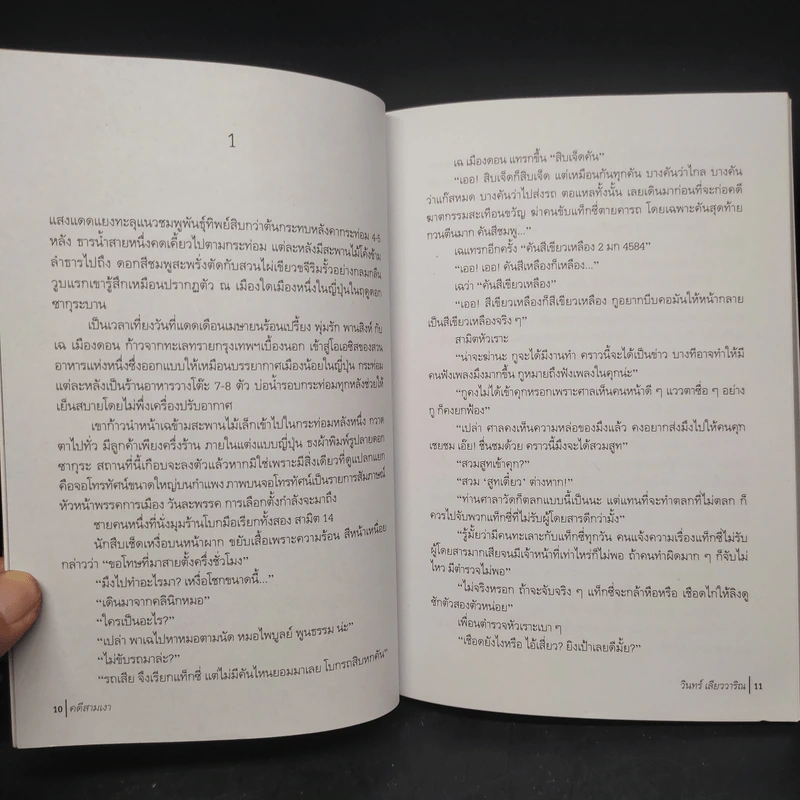 1
แสงแดดแยงทะลุแนวชมพูพันธุ์ทิพย์สิบกว่าต้นกระทบหลังคากระท่อม 4-5
หลัง ธารน้ำสายหนึ่งคดเคี้ยวไปตามกระท่อม แต่ละหลังมีสะพานไม้โค้งข้าม
ลำธารไปถึง ดอกสีชมพูสะพรั่งตัดกับสวนไผ่เขียวขจีริมรั้วอย่างกลมกลืน
วูบแรกเขารู้สึกเหมือนปรากฏตัว ณ เมืองใดเมืองหนึ่งในญี่ปุ่นในฤดูดอก
ซากุระบาน
เป็นเวลาเที่ยงวันที่แดดเดือนเมษายนร้อนเปรี้ยง พุ่มรัก พานสิงห์ กับ
เฉ เมืองดอน ก้าวจากทะเลทรายกรุงเทพฯเบื้องนอก เข้าสู่โอเอซิสของสวน
อาหารแห่งหนึ่งซึ่งออกแบบให้เหมือนบรรยากาศเมืองน้อยในญี่ปุ่น กระท่อม
แต่ละหลังเป็นร้านอาหารวางโต๊ะ 7-8 ตัว บ่อน้ำรอบกระท่อมทุกหลังช่วยให้
เย็นสบายโดยไม่พึ่งเครื่องปรับอากาศ
เขาก้าวนำหน้าเฉข้ามสะพานไม้เล็กเข้าไปในกระท่อมหลังหนึ่ง กวาด
ตาไปทั่ว มีลูกค้าเพียงครึ่งร้าน ภายในแต่งแบบญี่ปุ่น ธงผ้าพิมพ์รูปลายดอก
ซากุระ สถานที่นี้เกือบจะลงตัวแล้วหากมิใช่เพราะมีสิ่งเดียวที่ดูแปลกแยก
คือจอโทรทัศน์ขนาดใหญ่บนกำแพง ภาพบนจอโทรทัศน์เป็นรายการสัมภาษณ์
หัวหน้าพรรคการเมือง วันละพรรค การเลือกตั้งกำลังจะมาถึง
ชายคนหนึ่งที่นั่งมุมร้านโบกมือเรียกทั้งสอง สามิต 14
นักสืบเช็ดเหงื่อบนหน้าผาก ขยับเสื้อเพราะความร้อน สีหน้าเหนื่อย
กล่าวว่า “ขอโทษที่มาสายตั้งครึ่งชั่วโมง”
“มึงไปทำอะไรมา? เหงื่อโชกขนาดนี้...”
“เดินมาจากคลินิกหมอ”
“ใครเป็นอะไร?”
“เปล่า พาเฉไปหาหมอตามนัด หมอไพบูลย์ พูนธรรม น่ะ”
“ไม่ขับรถมาล่ะ?”
“รถเสีย จึงเรียกแท็กซี่ แต่ไม่มีคันไหนยอมมาเลย โบกรถสิบหกคัน”
10 คดีสามเงา
เฉ เมืองดอน แทรกขึ้น “สิบเจ็ดคัน”
“เออ! สิบเจ็ดก็สิบเจ็ด แต่เหมือนกันทุกคัน บางคันว่าไกล บางคัน
ว่าแก๊สหมด บางคันว่าไปส่งรถ ตอแหลทั้งนั้น เลยเดินมาก่อนที่จะก่อคดี
ฆาตกรรมสะเทือนขวัญ ฆ่าคนขับแท็กซี่ตายคารถ โดยเฉพาะคันสุดท้าย
กวนตีนมาก คันสีชมพู...”
เฉแทรกอีกครั้ง “คันสีเขียวเหลือง 2 มก 4584”
“เออ! เออ! คันสีเหลืองก็เหลือง...”
เฉว่า “คันสีเขียวเหลือง”
“เออ! สีเขียวเหลืองก็สีเขียวเหลือง กูอยากบีบคอมันให้หน้ากลาย
เป็นสีเขียวเหลืองจริง ๆ”
สามิตหัวเราะ
“น่าจะฆ่านะ กูจะได้มีงานทำ คราวนี้จะได้เป็นข่าว บางทีอาจทำให้มี
คนฟังเพลงมึงมากขึ้น กูหมายถึงฟังเพลงในคุกน่ะ”
“กูคงไม่ได้เข้าคุกหรอกเพราะศาลเห็นคนหน้าดี ๆ แววตาซื่อ ๆ อย่าง
กู ก็คงยกฟ้อง”
“เปล่า ศาลคงเห็นความหล่อของมึงแล้ว คงอยากส่งมึงไปให้คนคุก
เชยชม เอ๊ย! ชื่นชมด้วย คราวนี้มึงจะได้สวมสูท”
“สวมสูทเข้าคุก?”
“สวม ‘สูทเดี่ยว’ ต่างหาก!”
“ท่านศาลาวัดก็ตลกแบบนี้เป็นนะ แต่แทนที่จะทำตลกที่ไม่ตลก ก็
ควรไปจับพวกแท็กซี่ที่ไม่รับผู้โดยสารดีกว่ามั้ง”
“รู้มั้ยว่ามีคนทะเลาะกับแท็กซี่ทุกวัน คนแจ้งความเรื่องแท็กซี่ไม่รับ
ผู้โดยสารมากเสียจนมีเจ้าหน้าที่เท่าไหร่ก็ไม่พอ ถ้าคนทำผิดมาก ๆ ก็จับไม่
ไหว มีตำรวจไม่พอ”
“ไม่จริงหรอก ถ้าจะจับจริง ๆ แท็กซี่จะกล้าหือหรือ เชือดไก่ให้ลิงดู
ซักตัวสองตัวหน่อย”
เพื่อนตำรวจหัวเราะเบา ๆ
“เชือดยังไงหรือ ไอ้เสี่ยว? ยิงเป้าเลยดีมั้ย?”
วินทร์ เลียววาริณ 11